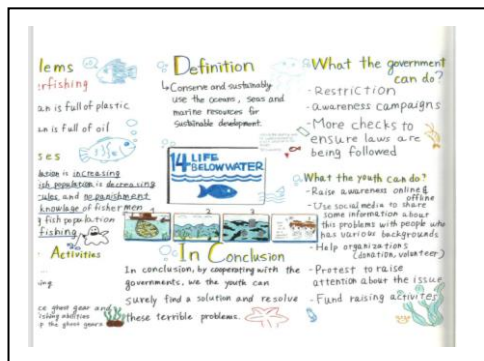 lems
erfishing
an is full of plastic
an is full of oil
ses
lation is increasing
ish population is decreasing
rules, and no punishment
knowlage of fisher men
g fish population
fishing
Activities
ing.
ce ghost gear and
fishing abilities
p the ghost gears
Definition
↳ Conserve and sustainably
use the oceans, seas and
marine resources for
sustainable development.
14 LIFE
BELOW WATER
2
3
4
In Conclusion
In conclusion, by cooperating with the
governments, we the youth can
surely find a solution and resolve
these terrible problems.
What the government
can do?
- Restriction
- awareness campaigns
- More checks to
ensure laws are
being followed
What the youth can do?
- Raise awareness online &
offline
- Use social media to share
some information about
this problems with people who
has various backgrounds
- Help organizations
(donation, volunteer)
- Protest to raise
attention about the issue
- Fund raising activites